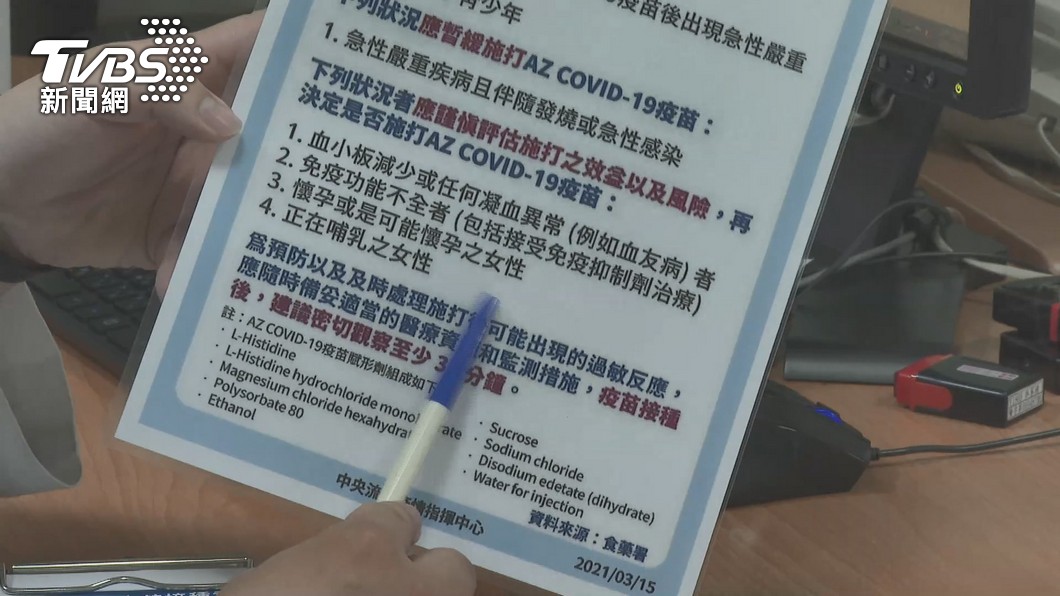 TVBS
新聞網
疫苗後出現急性嚴重
青少年
下列狀況應暫緩施打AZ COVID-19疫苗：
1. 急性嚴重疾病且伴隨發燒或急性感染
下列狀況者應謹慎評估施打之效益以及風險，再
決定是否施打AZ COVID-19疫苗：
1. 血小板減少或任何凝血異常 (例如血友病) 者
2. 免疫功能不全者 (包括接受免疫抑制劑治療)
3. 懷孕或是可能懷孕之女性
4. 正在哺乳之女性
為預防以及及時處理施打 可能出現的過敏反應，
應隨時備妥適當的醫療資 和監測措施，疫苗接種
後，建議密切觀察至少 3 分鐘。
註：AZ COVID-19疫苗賦形劑組成如下
· L-Histidine
· L-Histidine hydrochloride
· Magnesium chloride
· Polysorbate 80
· Ethanol
· Sucrose
· Sodium chloride
· Disodium edetate (dihydrate)
· Water for injection
資料來源：食藥署
中央流 疫情指揮中心
2021/03/15